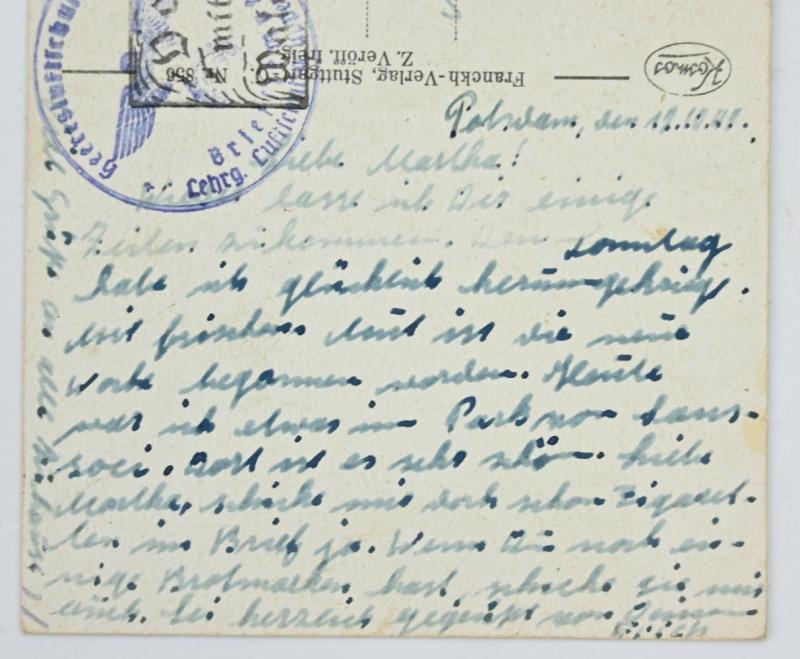 Heeresluftschutz
Lehrg. Luftsch
Brief
Nr. 856
Franckh-Verlag, Stuttgart-O.
Z. Veröff. freig.
Kosmos
Potsdam, den
Liebe Martha!
lasse ich Dir einige
Zeilen zukommen. Den Sonntag
habe ich glücklich herumgekriegt.
Mit frischem Mut ist die neue
Woche begonnen worden. Heute
war ich etwas im Park von Sans-
soci. Dort ist es sehr schön. Liebe
Martha, schicke mir doch schon Zigaret-
ten im Brief ja. Wenn Du noch ei-
nige Brotmarken hast, schicke sie mir
auch. Sei herzlich gegrüßt von Deinem
Erich
Grüße an alle